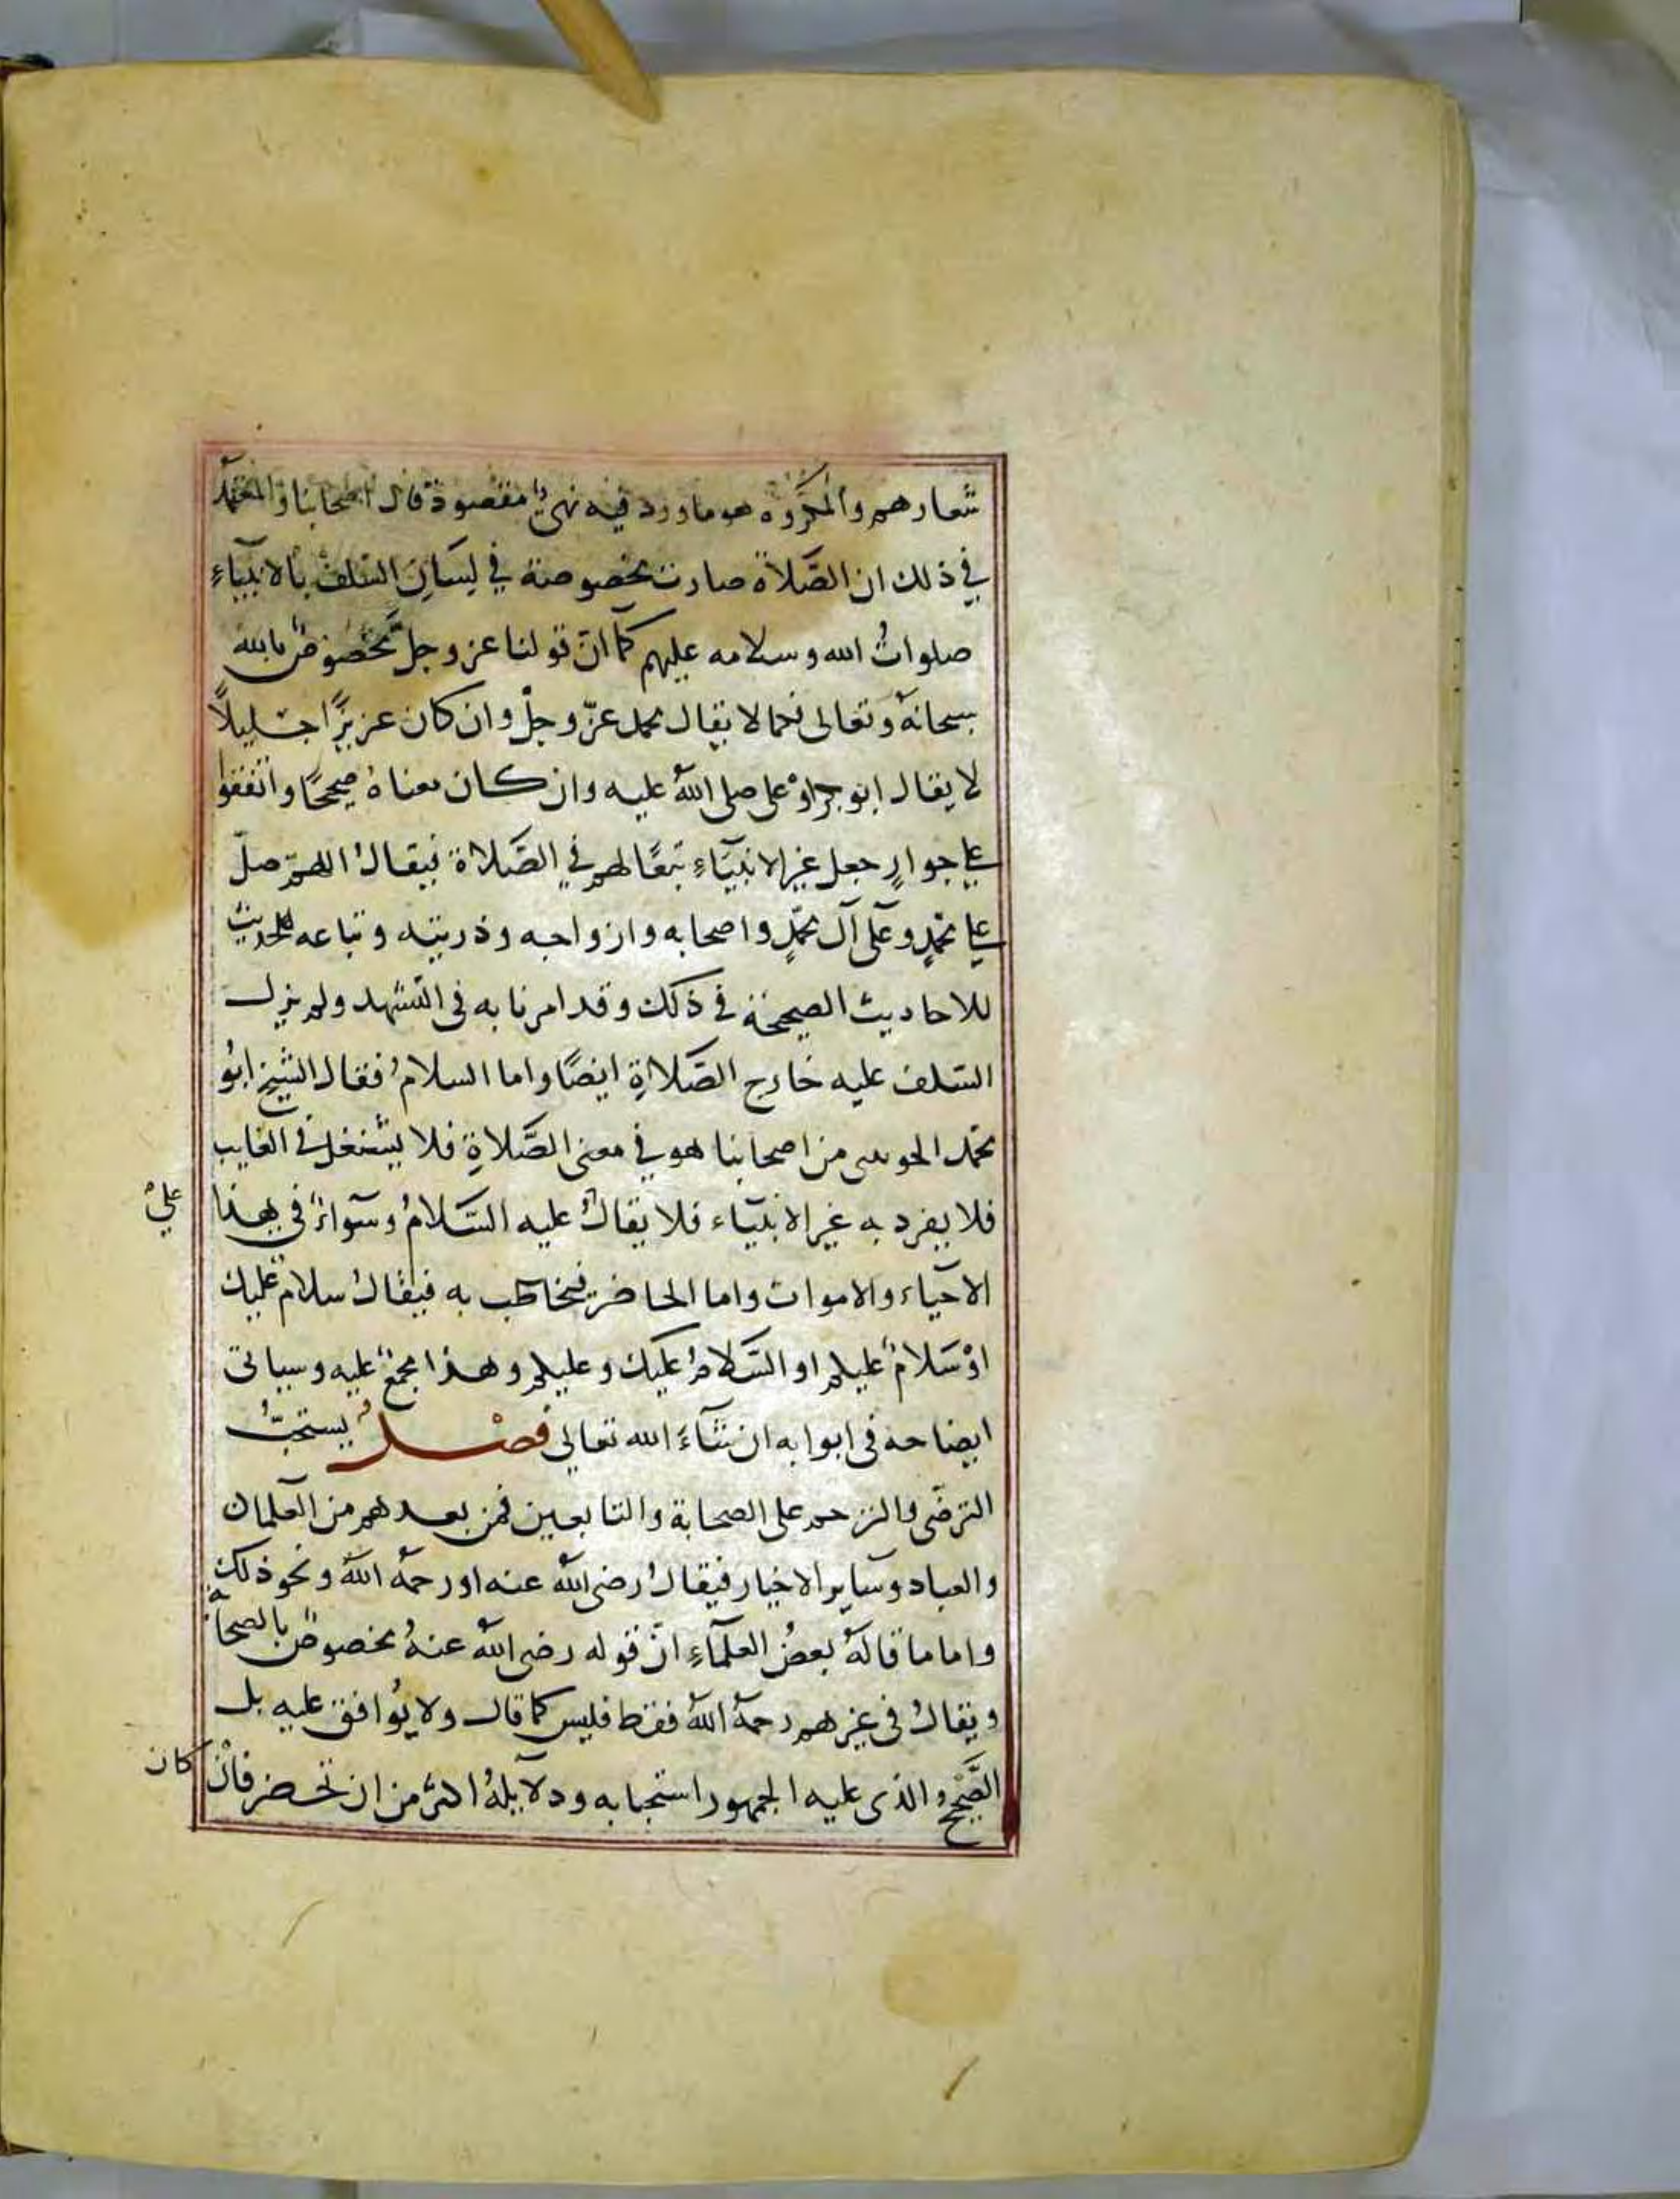 شعارهم والمكروه هو ما ورد فيه نهيٌ مقصودة قال اصحابنا والمعتمد
في ذلك ان الصَّلاة صارت مخصوصة في لِسَانِ السَّلف بالانبياءِ
صلواتُ الله وسلامه عليهم كما انّ قولنا عز وجلّ مخصوصٌ بالله
سبحانهُ وتعالى فكما لا يقال محمد عزّ وجلّ وان كان عزيزًا جليلاً
لا يقال ابو بكر اوْ على صلى اللهُ عليه وان كان معناهُ صحيحًا واتفقوا
على جوازِ جعل غير الانبيَاءِ تبعًا لهم في الصَّلاة فيقالُ اللهمّ صلّ
على محمّدٍ وعَلى آل محمّدٍ واصحابه وازواجه وذريته وتباعه للحديث
للاحاديث الصحيحة في ذلك وقد امرنا به في التشهد ولم يزل
السَّلف عليه خارج الصَّلاةِ ايضًا واما السلامُ فقال الشيخ ابُو
محمّد الجويني من اصحابنا هو في معنى الصَّلاةِ فلا يستعمل في الغايب
فلا يفرد به غير الانبيَاء فلا يقالُ عليه السَّلامُ وسَواءٌ في هذا
علىْ
الاحياء والاموات واما الحاضر فيخاطَب به فيقالُ سلامٌ عليك
اوْ سَلامٌ عليكم او السَّلامُ عليك وعليكم وهذا مجمعٌ عليه وسياتى
ايضاحه في ابوابه ان شَاءَ الله تعالي فصْلٌ يستحبُّ
الترضّى والترحم على الصحابة والتابعين فمن بعدهم من العلمآ
والعباد وسَاير الاخيار فيقالُ رضى اللهُ عنه او رحمهُ اللهُ ونحو ذلك
واما ما قالهُ بعضُ العلمآءِ انّ قوله رضى اللهُ عنهُ مخصوصٌ بالصحابة
ويقالُ في غيرهم رحمهُ اللهُ فقط فليس كما قال ولا يُوافق عليه بل
الصَّحيحُ والذى عليه الجمهور استحبابه ودلايلهُ اكثر من ان تحصر فان
كان